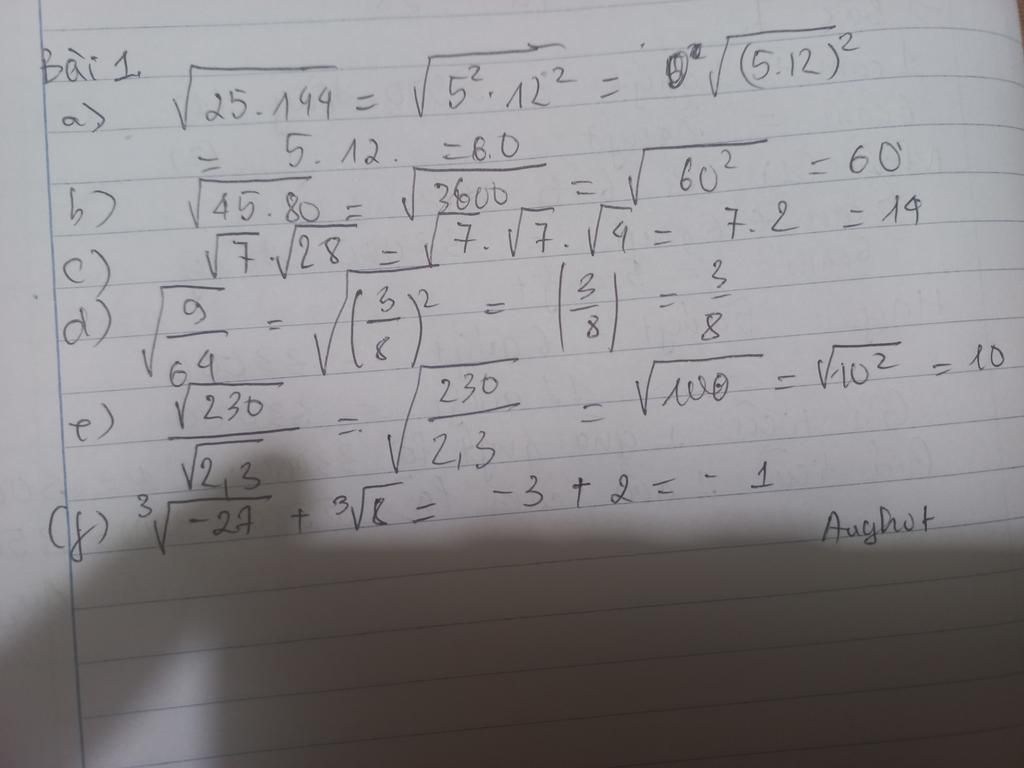 Bài 1.
a) √(25.144) = √(5².12²) = √(5.12)²
= 5.12. = 60
b) √(45.80) = √3600 = √60² = 60
c) √7.√28 = √7.√7.√4 = 7.2 = 14
d) √(9/64) = √(3/8)² = |3/8| = 3/8
e) √230/√2,3 = √(230/2,3) = √100 = √10² = 10
(f) ³√-27 + ³√8 = -3 + 2 = -1